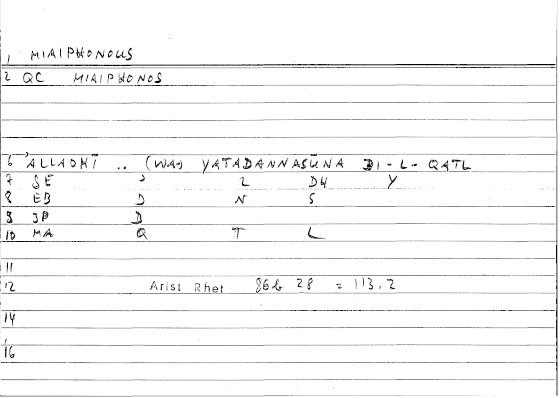 1 MIAIPHONOUS
2 QC MIAIPHONOS
6 'ALLADHĪ .. (WA) YATADANNASŪNA BI-L-QATL
7 SE ' L DH Y
8 EB D N S
9 JP D
10 MA Q T L
11
12 Arist Rhet 86b 28 = 113,2
14
16